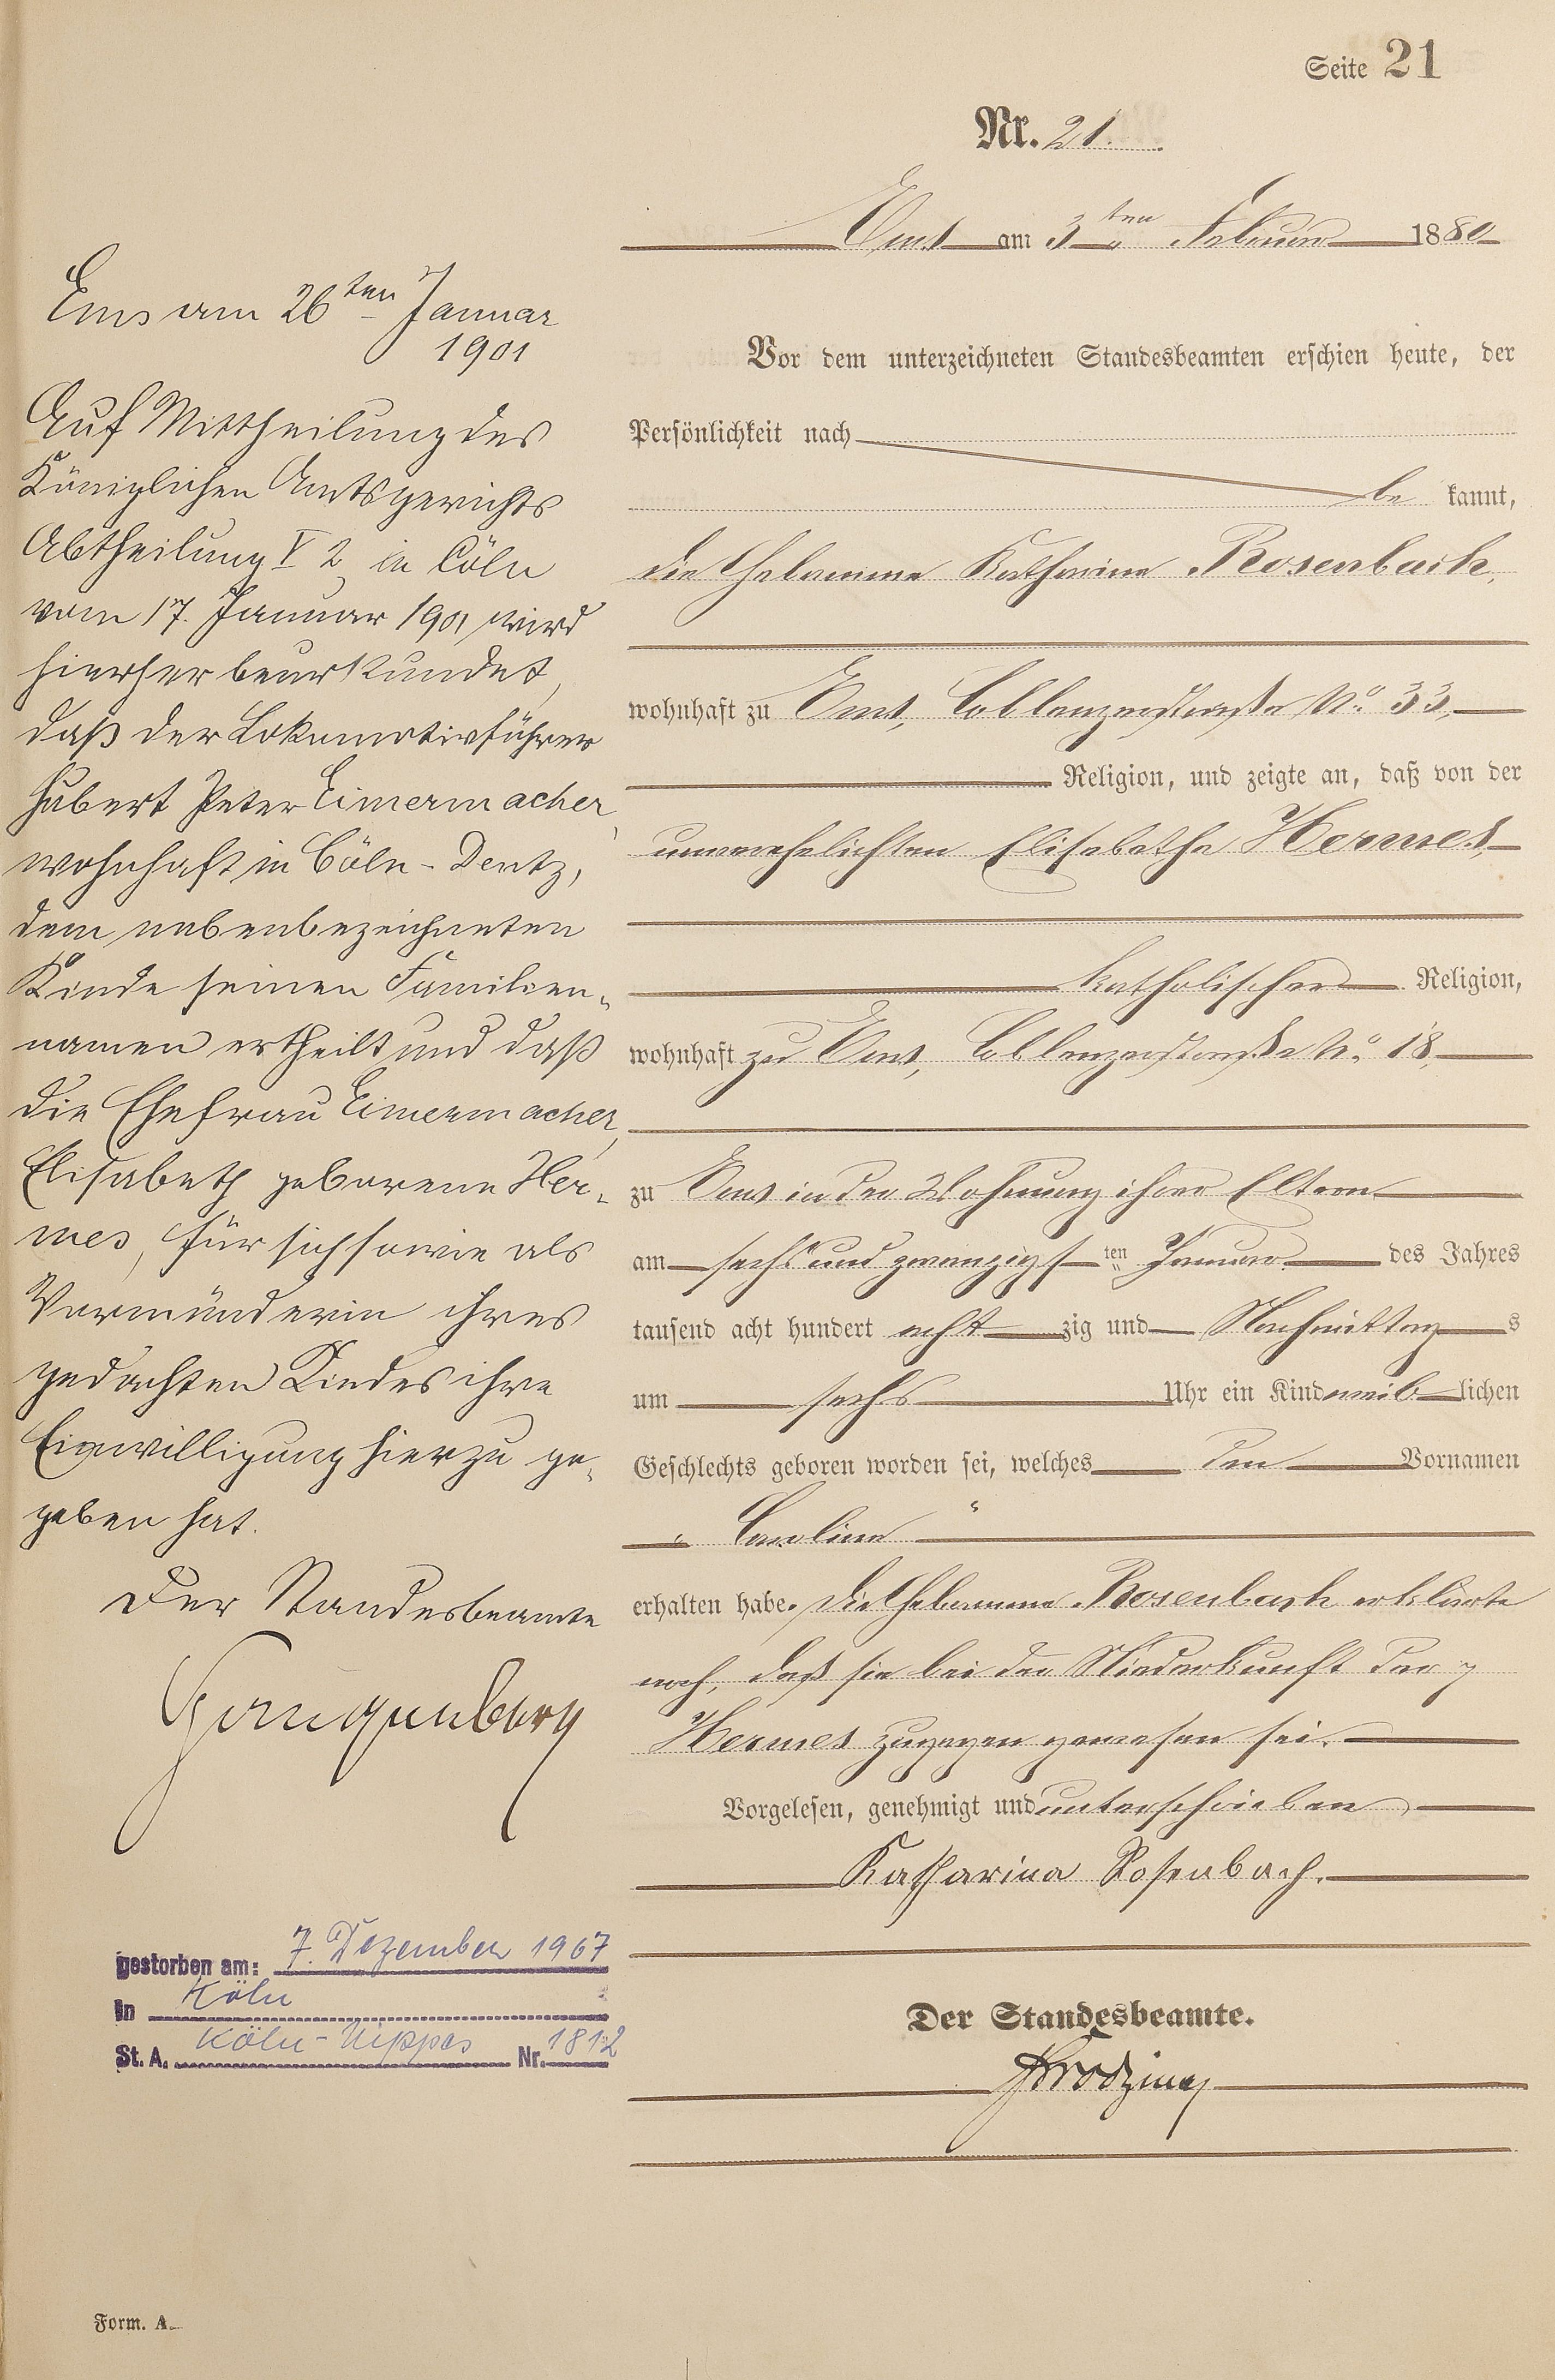 Seite 21
Nr. 21.
Ems am 3ten Februar 1880
Vor dem unterzeichneten Standesbeamten erschien heute, der
Persönlichkeit nach
be kannt,
die Hebamme Katharina Rosenbach,
wohnhaft zu Ems, Coblenzerstraße No. 33,
Religion, und zeigte an, daß von der
unverehelichten Elisabetha Hermes,
katholischer Religion,
wohnhaft zu Ems, Coblenzerstraße No. 18,
zu Ems in der Wohnung ihrer Eltern
am sechs und zwanzigsten Januar des Jahres
tausend acht hundert achtzig und Nachmittags
um sechs Uhr ein Kind weiblichen
Geschlechts geboren worden sei, welches den Vornamen
„Carolina“
erhalten habe. Die Hebamme Rosenbach erklärte
noch, daß sie bei der Niederkunft der p
Hermes zugegen gewesen sei.
Vorgelesen, genehmigt und unterschrieben
Katharina Rosenbach.
Der Standesbeamte.
Ems am 26ten Januar
1901
Auf Mittheilung des
Königlichen Amtsgerichts
Abtheilung V 2 in Cöln
vom 17. Januar 1901 wird
hierher beurkundet,
daß der Lokomotivführer
Hubert Peter Eimermacher,
wohnhaft in Cöln-Deutz,
dem nebenbezeichneten
Kinde seinen Familien-
namen ertheilt und daß
die Ehefrau Eimermacher,
Elisabeth geborene Her-
mes, für sich sowie als
Vormünderin ihres
gedachten Kindes ihre
Einwilligung hierzu ge-
geben hat.
Der Standesbeamte
gestorben am: 7. Dezember 1967
in Köln
St. A. Köln-Nippes Nr. 1812
Form. A.